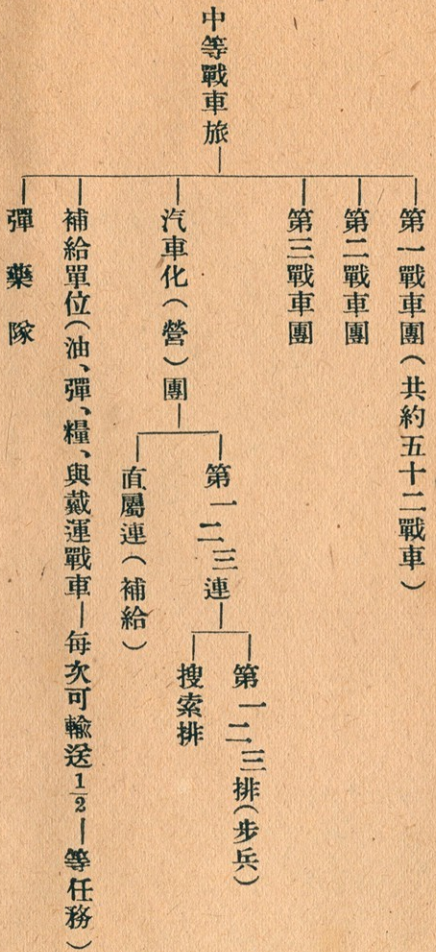 中等戰車旅
第一戰車團（共約五十二戰車）
第二戰車團
第三戰車團
汽車化（營）團
第一二三連
第一二三排（步兵）
搜索排
直屬連（補給）
補給單位（油、彈、糧、與戴運戰車—每次可輸送1/2—等任務）
彈藥隊